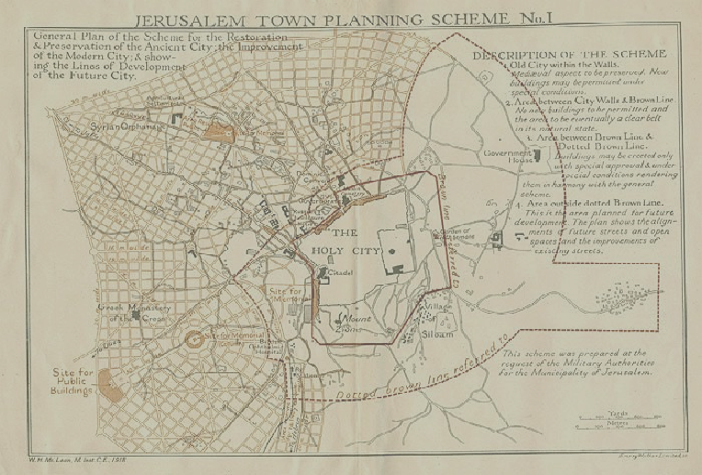 JERUSALEM TOWN PLANNING SCHEME No. 1
General Plan of the Scheme for the Restoration
& Preservation of the Ancient City; the Improvement
of the Modern City; & show-
ing the Lines of Development
of the Future City.
DESCRIPTION OF THE SCHEME
1. Old City within the Walls.
Mediæval aspect to be preserved. New
buildings may be permitted under
special conditions.
2. Area between City Walls & Brown Line.
No new buildings to be permitted and
the area to be eventually a clear belt
in its natural state.
3. Area between Brown Line &
Dotted Brown Line.
Buildings may be erected only
with special approval & under
special conditions rendering
them in harmony with the general
scheme.
4. Area outside dotted Brown Line.
This is the area planned for future
development. The plan shows the align-
ments of future streets and open
spaces and the improvements of
existing streets.
Syrian Orphanage
Government
House
Brown line
referred to
THE
HOLY CITY
Citadel
Site for
Memorial
Mount
Zion
Village
of
Siloam
Greek Monastery
of the Cross
Site for Memorial
Site for
Public
Buildings
Dotted brown line referred to
This scheme was prepared at the
request of the Military Authorities
for the Municipality of Jerusalem.
Yards
Metres
W. H. Mc Lean, M. Inst C.E., 1918